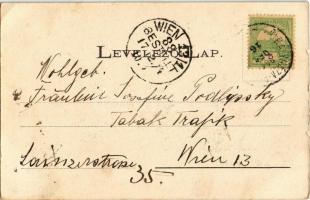 WIEN 13/1
LEVELEZŐ-LAP.
Wohlgeb.
Fräulein Josefine Podlipsky
Tabak Trafik
Wien 13
35.